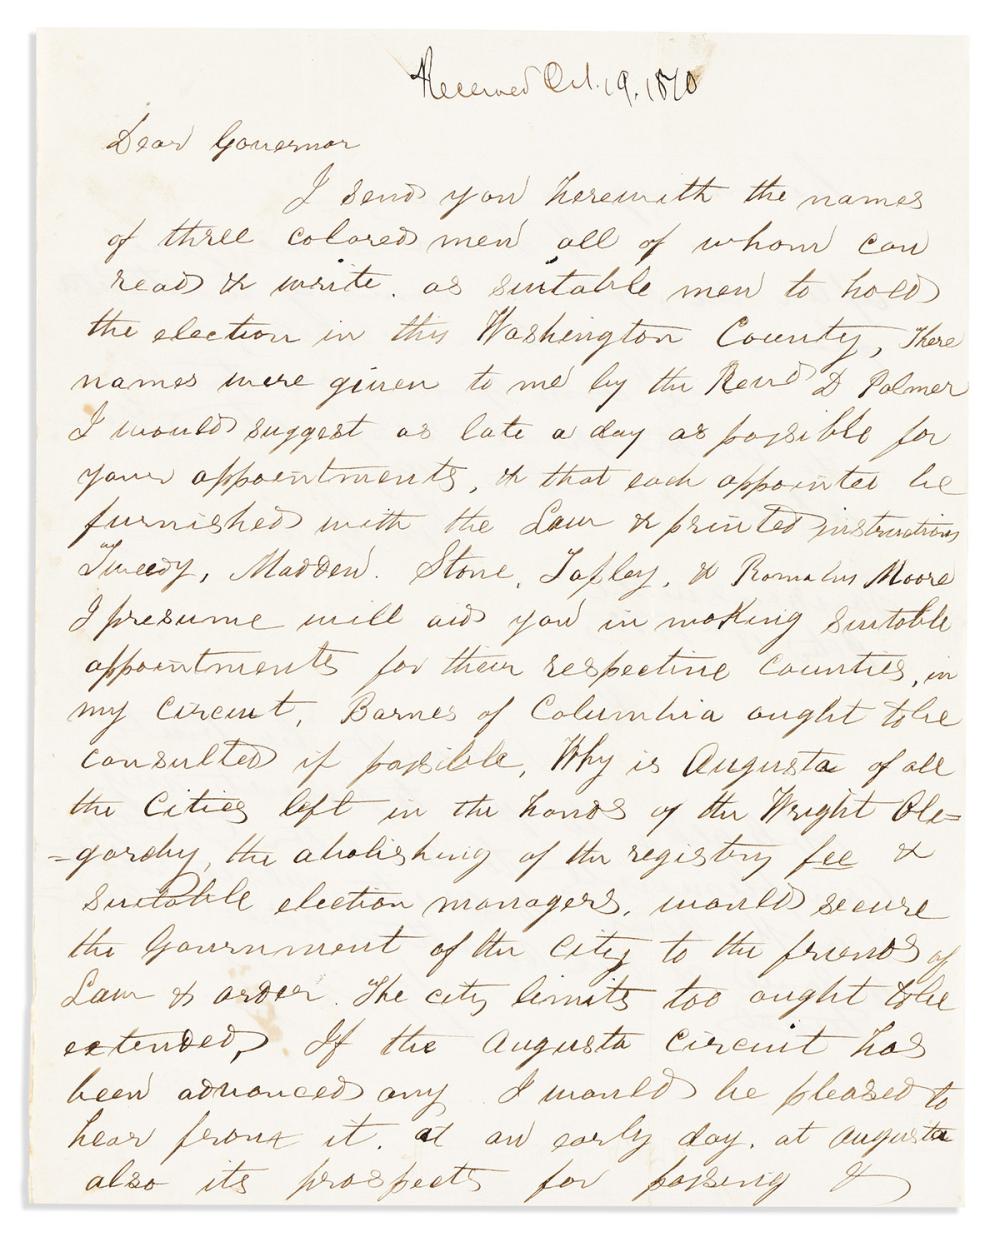 Received Oct. 19. 1870
Dear Governor
I send you herewith the names
of three colored men all of whom can
read & write. as suitable men to hold
the election in this Washington County, There
names were given to me by the Revd D Palmer
I would suggest as late a day as possible for
your appointments, & that each appointee be
furnished with the Law & printed instructions
Tweedy, Madden. Stone, Tapley, & Romulus Moore
I presume will aid you in making suitable
appointments for their respective Counties, in
my Circuit, Barnes of Columbia ought to be
consulted if possible, Why is Augusta of all
the Cities left in the hands of the Wright Ole=
=garchy, the abolishing of the registry fee &
suitable election managers, would secure
the Government of the City to the friends of
Law & order. The city limits too ought to be
extended, If the Augusta Circuit has
been advanced any I would be pleased to
hear from it. at an early day. at Augusta
also its prospects for passing &